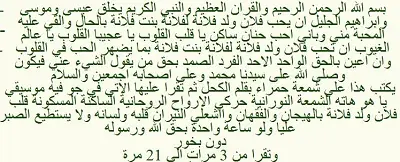 بسم الله الرحمن الرحيم والقران العظيم والنبي الكريم بخلق عيسى وموسى
وابراهيم الجليل ان يحب فلان ولد فلانة لفلانة بنت فلانة بالحال والقي عليه
المحبة مني وباني احب حنان ساكن يا قلب القلوب يا عجيبا القلوب يا عالم
الغيوب ان تحب فلان ولد فلانة لفلانة بنت فلانة بما يضهر الحب في القلوب
وان اعين بالحق الواحد الاحد الفرد الصمد بحق من يقول الشيء عني فيكون
وصلى الله على سيدنا محمد وعلى اصحابه اجمعين والسلام
يكتب هذا على شمعة حمراء بقلم الكحل ثم تقرا عليها الاتي في جو فيه موسيقي
يا هو هاته الشمعة النورانية حركي الارواح الروحانية الساكنة المسكونة قلب
فلان ولد فلانة بالهيجان والفقهان واشعلي النيران قلبه ولسانه ولا يستطيع الصبر
عليا ولو ساعة واحدة بحق الله ورسوله
دون بخور
وتقرا من 3 مرات الى 21 مرة